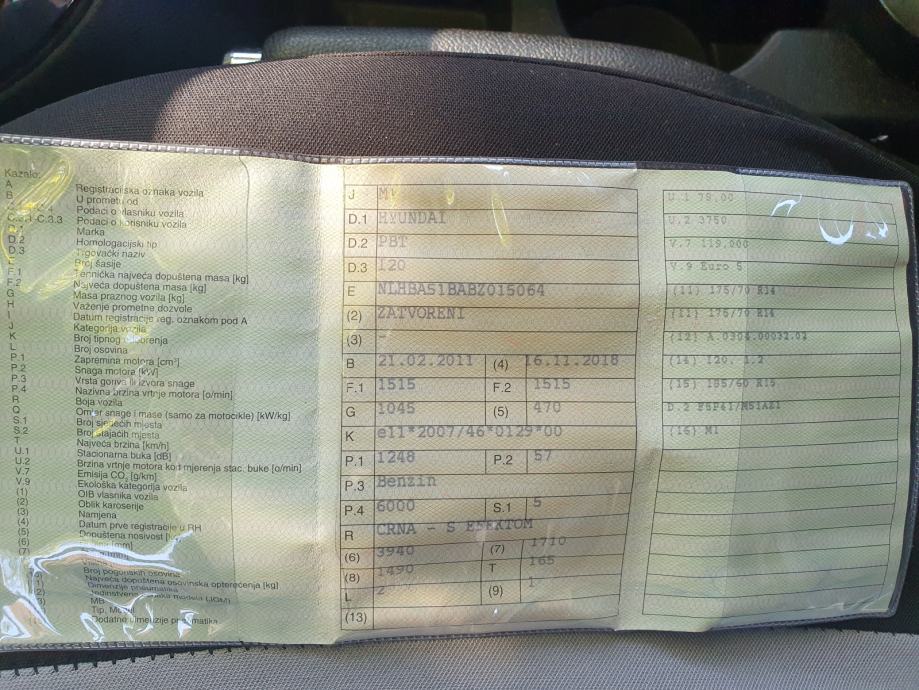 Kazalo:
A Registracijska oznaka vozila
B U prometu od
Podaci o vlasniku vozila
C.3.1-C.3.3 Podaci o korisniku vozila
D.1 Marka
D.2 Homologacijski tip
D.3 Trgovački naziv
E Broj šasije
F.1 Tehnička najveća dopuštena masa [kg]
F.2 Najveća dopuštena masa [kg]
G Masa praznog vozila [kg]
H Važenje prometne dozvole
I Datum registracije reg. oznakom pod A
J Kategorija vozila
K Broj tipnog odobrenja
L Broj osovina
P.1 Zapremina motora [cm³]
P.2 Snaga motora [kW]
P.3 Vrsta goriva ili izvora snage
P.4 Nazivna brzina vrtnje motora [o/min]
R Boja vozila
Q Omjer snage i mase (samo za motocikle) [kW/kg]
S.1 Broj sjedećih mjesta
S.2 Broj stajaćih mjesta
T Najveća brzina [km/h]
U.1 Stacionarna buka [dB]
U.2 Brzina vrtnje motora kod mjerenja stac. buke [o/min]
V.7 Emisija CO₂ [g/km]
V.9 Ekološka kategorija vozila
(1) OIB vlasnika vozila
(2) Oblik karoserije
(3) Namjena
(4) Datum prve registracije u RH
(5) Dopuštena nosivost [kg]
(6) [mm]
(7)
Broj pogonskih osovina
Najveća dopuštena osovinska opterećenja [kg]
Dimenzije pneumatika
Jedinstvena oznaka modela (JOM)
MB
Tip, Model
Dodatne dimenzije pneumatika
J M1
D.1 HYUNDAI
D.2 PBT
D.3 I20
E NLHBA51BABZ015064
(2) ZATVORENI
(3) -
B 21.02.2011 (4) 16.11.2018
F.1 1515 F.2 1515
G 1045 (5) 470
K e11*2007/46*0129*00
P.1 1248 P.2 57
P.3 Benzin
P.4 6000 S.1 5
R CRNA - S EFEKTOM
(6) 3940 (7) 1710
(8) 1490 T 165
L 2 (9) 1
(13)
U.1 79,00
U.2 3750
V.7 119,000
V.9 Euro 5
(11) 175/70 R14
(11) 175/70 R14
(12) A.0304.00032.02
(14) I20. 1.2
(15) 185/60 R15
D.2 F5P41/M51AZ1
(16) M1